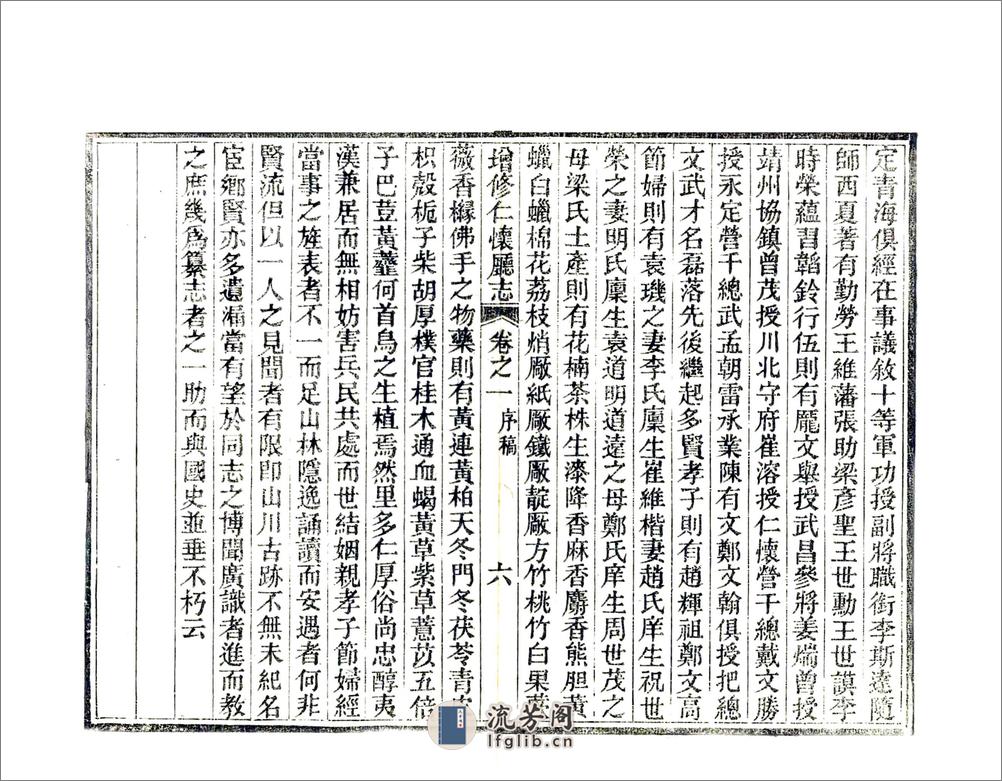 定青海俱經在事議敘十等軍功授副將職銜李斯達隨
師西夏著有勤勞王維藩張助梁彥聖王世勳王世謨李
時榮蘊習韜鈐行伍則有龐文舉授武昌參將姜煓曾授
靖州協鎮曾茂授川北守府崔溶授仁懷營千總戴文勝
授永定營千總武孟朝雷承業陳有文鄭文翰俱授把總
文武才名磊落先後繼起多賢孝子則有趙輝祖鄭文高
節婦則有袁璣之妻李氏廩生崔維楷妻趙氏庠生祝世
榮之妻明氏廩生袁道明道遠之母鄭氏庠生周世茂之
母梁氏土產則有花楠茶株生漆降香麻香麝香熊胆黃
蠟白蠟棉花荔枝焇厰紙厰鐵厰靛厰方竹桃竹白果
增修仁懷廳志 卷之一 序稿 六
薇香櫞佛手之物藥則有黃連黃柏天冬門冬茯苓青
枳殼梔子柴胡厚樸官桂木通血蝎黃草紫草薏苡五倍
子巴荳黃蘗何首烏之生植焉然里多仁厚俗尚忠醇夷
漢兼居而無相妨害兵民共處而世結姻親孝子節婦經
當事之旌表者不一而足山林隱逸誦讀而安遇者何非
賢流但以一人之見聞者有限即山川古跡不無未紀名
宦鄉賢亦多遺漏當有望於同志之博聞廣識者進而教
之庶幾爲纂志者之一助而與國史並垂不朽云
流芳阁
lfglib.cn